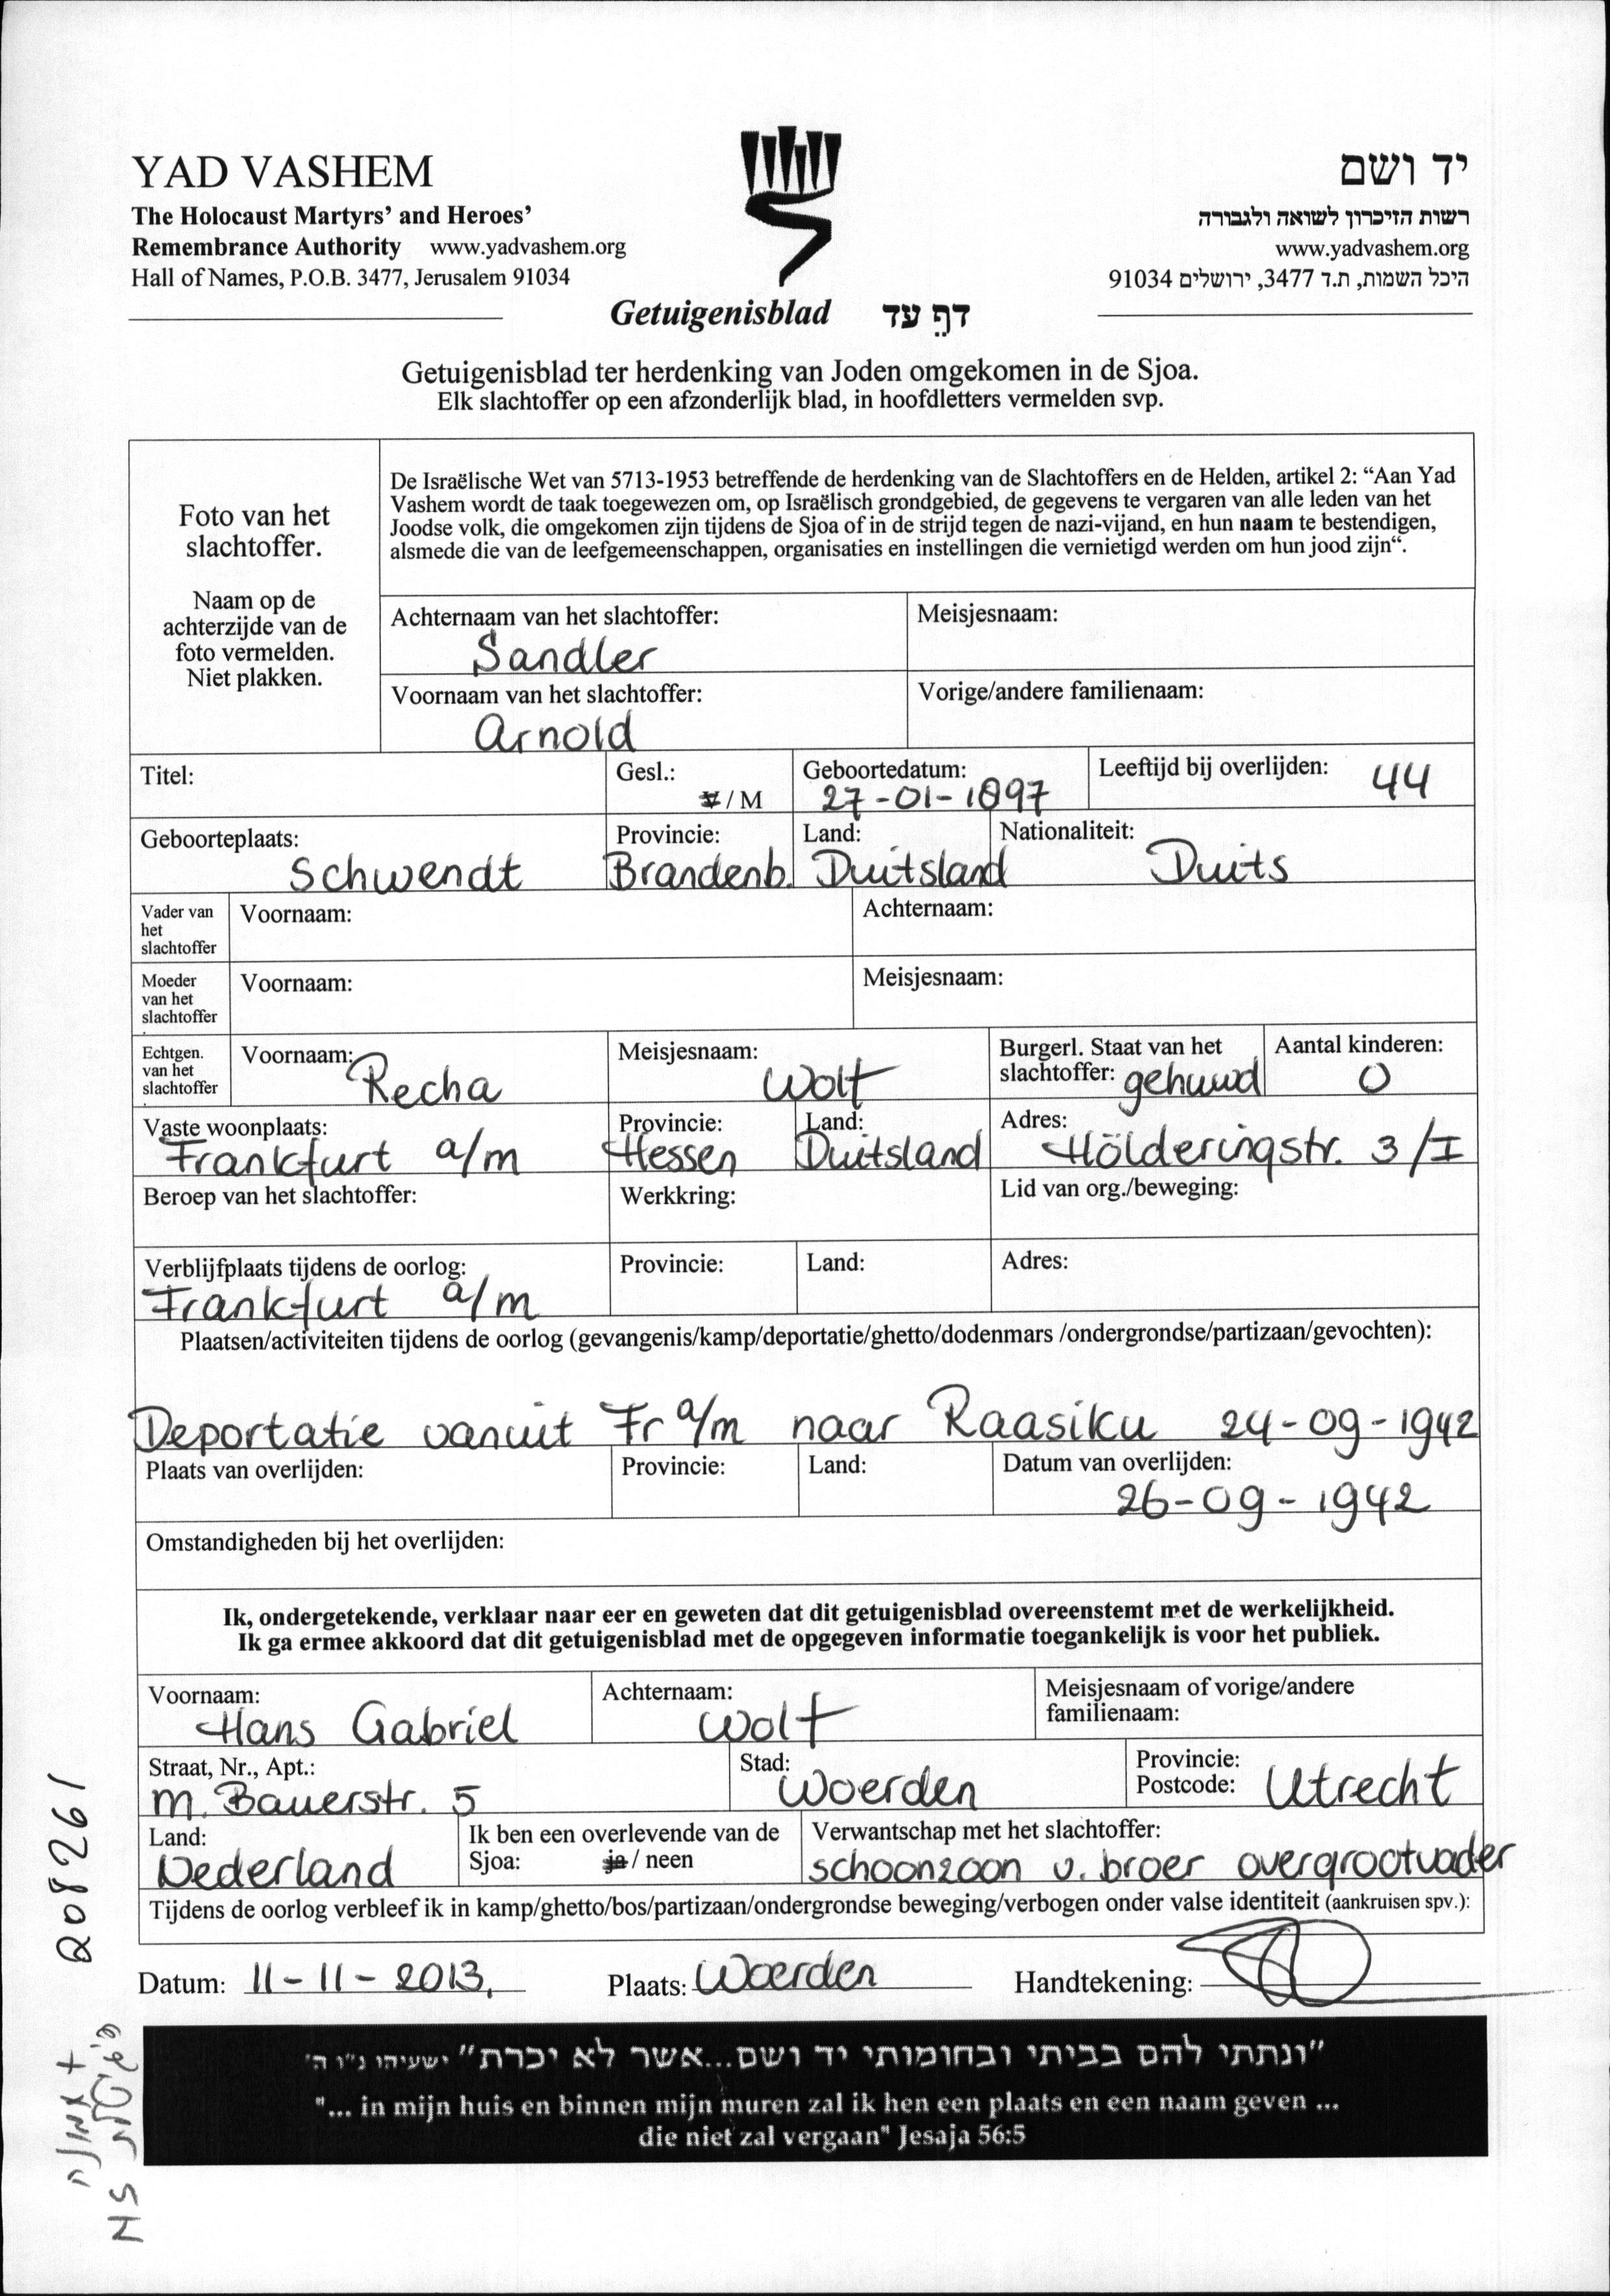 YAD VASHEM
The Holocaust Martyrs’ and Heroes’
Remembrance Authority www.yadvashem.org
Hall of Names, P.O.B. 3477, Jerusalem 91034
יד ושם
רשות הזיכרון לשואה ולגבורה
www.yadvashem.org
היכל השמות, ת.ד 3477, ירושלים 91034
Getuigenisblad דַף עֵד
Getuigenisblad ter herdenking van Joden omgekomen in de Sjoa.
Elk slachtoffer op een afzonderlijk blad, in hoofdletters vermelden svp.
Foto van het
slachtoffer.
Naam op de
achterzijde van de
foto vermelden.
Niet plakken.
De Israëlische Wet van 5713-1953 betreffende de herdenking van de Slachtoffers en de Helden, artikel 2: “Aan Yad
Vashem wordt de taak toegewezen om, op Israëlisch grondgebied, de gegevens te vergaren van alle leden van het
Joodse volk, die omgekomen zijn tijdens de Sjoa of in de strijd tegen de nazi-vijand, en hun naam te bestendigen,
alsmede die van de leefgemeenschappen, organisaties en instellingen die vernietigd werden om hun jood zijn“.
Achternaam van het slachtoffer: Meisjesnaam:
Sandler
Voornaam van het slachtoffer: Vorige/andere familienaam:
Arnold
Titel: Gesl.: Geboortedatum: Leeftijd bij overlijden: 44
V / M 27-01-1897
Geboorteplaats: Provincie: Land: Nationaliteit:
Schwendt Brandenb. Duitsland Duits
Vader van
het
slachtoffer
Voornaam: Achternaam:
Moeder
van het
slachtoffer
Voornaam: Meisjesnaam:
Echtgen.
van het
slachtoffer
Voornaam: Recha
Meisjesnaam: Wolf
Burgerl. Staat van het
slachtoffer: gehuwd
Aantal kinderen:
0
Vaste woonplaats: Provincie: Land: Adres:
Frankfurt a/m Hessen Duitsland Hölderingstr. 3/I
Beroep van het slachtoffer: Werkkring: Lid van org./beweging:
Verblijfplaats tijdens de oorlog: Provincie: Land: Adres:
Frankfurt a/m
Plaatsen/activiteiten tijdens de oorlog (gevangenis/kamp/deportatie/ghetto/dodenmars /ondergrondse/partizaan/gevochten):
Deportatie vanuit Fr a/m naar Raasiku 24-09-1942
Plaats van overlijden: Provincie: Land: Datum van overlijden:
26-09-1942
Omstandigheden bij het overlijden:
Ik, ondergetekende, verklaar naar eer en geweten dat dit getuigenisblad overeenstemt met de werkelijkheid.
Ik ga ermee akkoord dat dit getuigenisblad met de opgegeven informatie toegankelijk is voor het publiek.
Voornaam: Achternaam: Meisjesnaam of vorige/andere
familienaam:
Hans Gabriel Wolf
Straat, Nr., Apt.: Stad: Provincie:
Postcode:
M. Bauerstr. 5 Woerden Utrecht
Land: Ik ben een overlevende van de Verwantschap met het slachtoffer:
Sjoa: ja / neen
Nederland schoonzoon v. broer overgrootvader
Tijdens de oorlog verbleef ik in kamp/ghetto/bos/partizaan/ondergrondse beweging/verbogen onder valse identiteit (aankruisen spv.):
Datum: 11-11-2013. Plaats: Woerden Handtekening:
"ונתתי להם בביתי ובחומותי יד ושם...אשר לא יכרת" ישעיהו נ"ו ה'
"... in mijn huis en binnen mijn muren zal ik hen een plaats en een naam geven ...
die niet zal vergaan" Jesaja 56:5
208261